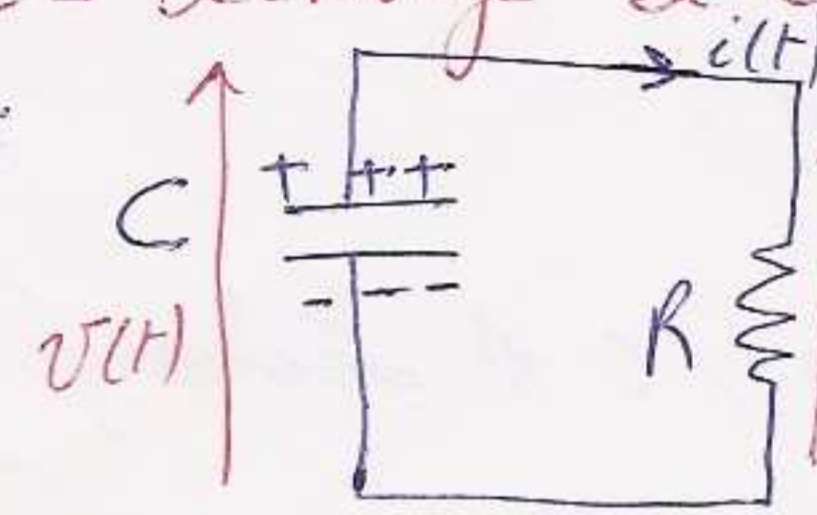 i(t)
+ + +
C
- - - -
v(t)
R